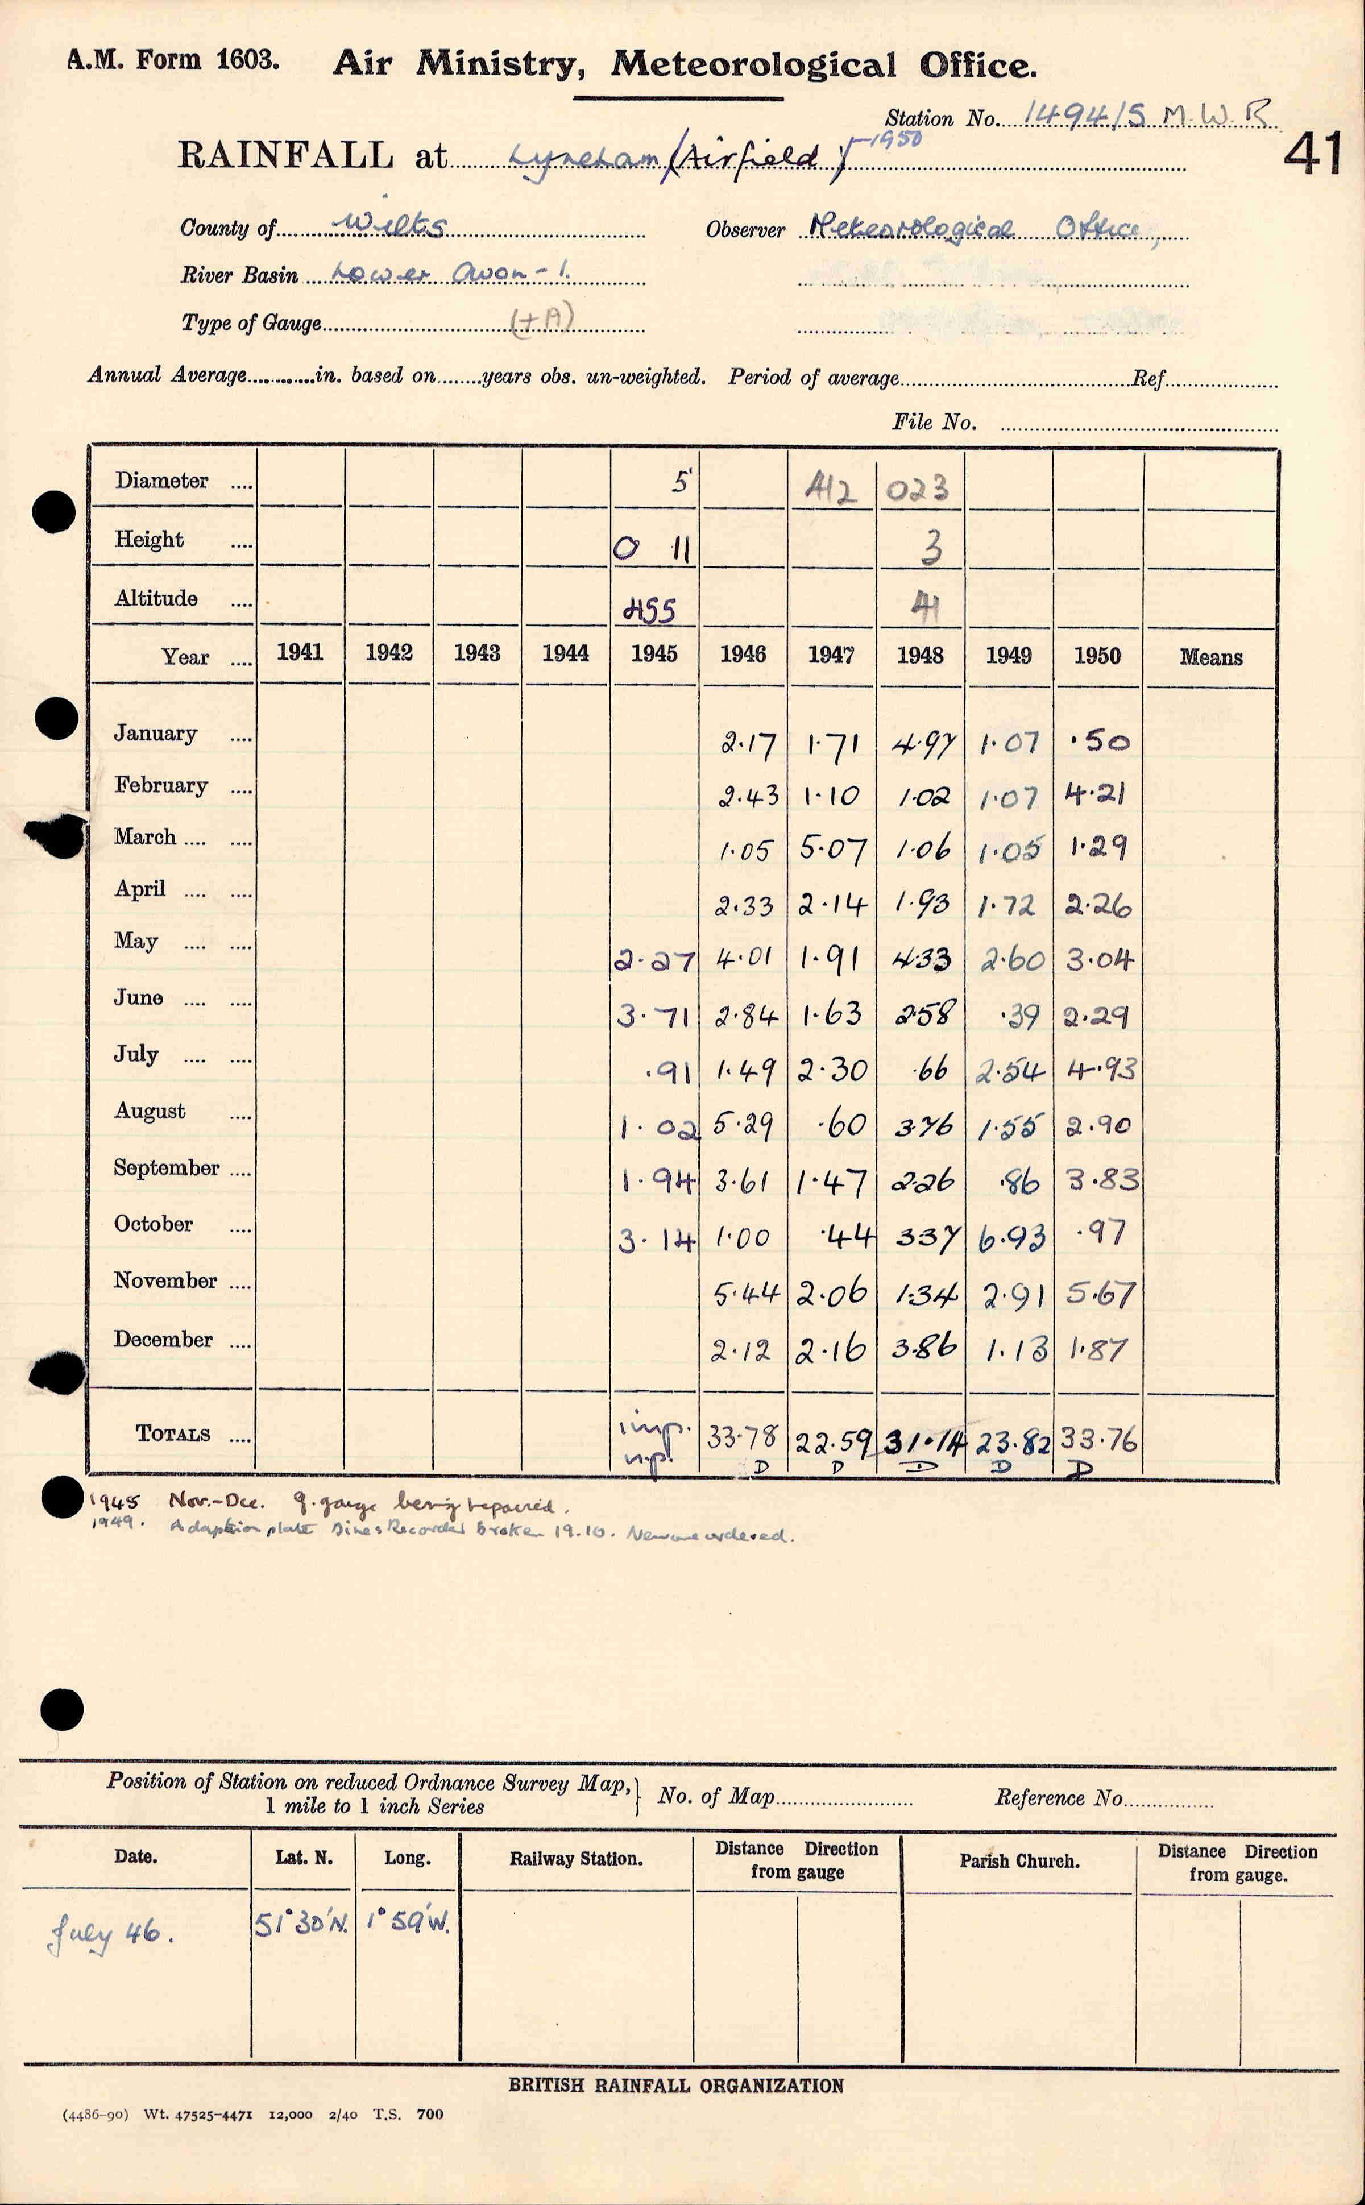 A.M. Form 1603. Air Ministry, Meteorological Office.
Station No. 1494/5 M.W.R
RAINFALL at Lyneham (Airfield) -1950
41
County of Wilts Observer Meteorological Office,
River Basin Lower Avon - 1.
Type of Gauge (+A)
Annual Average............in. based on........years obs. un-weighted. Period of average........Ref........
File No. ........
Diameter .... 5 A12 023
Height .... 0 11 3
Altitude .... 455 41
Year .... 1941 1942 1943 1944 1945 1946 1947 1948 1949 1950 Means
January .... 2.17 1.71 4.97 1.07 .50
February .... 2.43 1.10 1.02 1.07 4.21
March .... .... 1.05 5.07 1.06 1.05 1.29
April .... .... 2.33 2.14 1.93 1.72 2.26
May .... .... 2.27 4.01 1.91 4.33 2.60 3.04
June .... .... 3.71 2.84 1.63 2.58 .39 2.29
July .... .... .91 1.49 2.30 .66 2.54 4.93
August .... 1.02 5.29 .60 3.76 1.55 2.90
September .... 1.94 3.61 1.47 2.26 .86 3.83
October .... 3.14 1.00 .44 3.37 6.93 .97
November .... 5.44 2.06 1.34 2.91 5.67
December .... 2.12 2.16 3.86 1.13 1.87
TOTALS .... imp. 33.78 22.59 31.14 23.82 33.76
n.p. D D D D D
1945 Nov.-Dec. g. gauge being repaired.
1949. Adaption plate Dines Recorder broken 19.10. New one ordered.
Position of Station on reduced Ordnance Survey Map, } No. of Map........ Reference No........
1 mile to 1 inch Series
Date. Lat. N. Long. Railway Station. Distance Direction from gauge Parish Church. Distance Direction from gauge.
July 46. 51°30'N. 1°59'W.
BRITISH RAINFALL ORGANIZATION
(4486-90) Wt. 47525-4471 12,000 2/40 T.S. 700